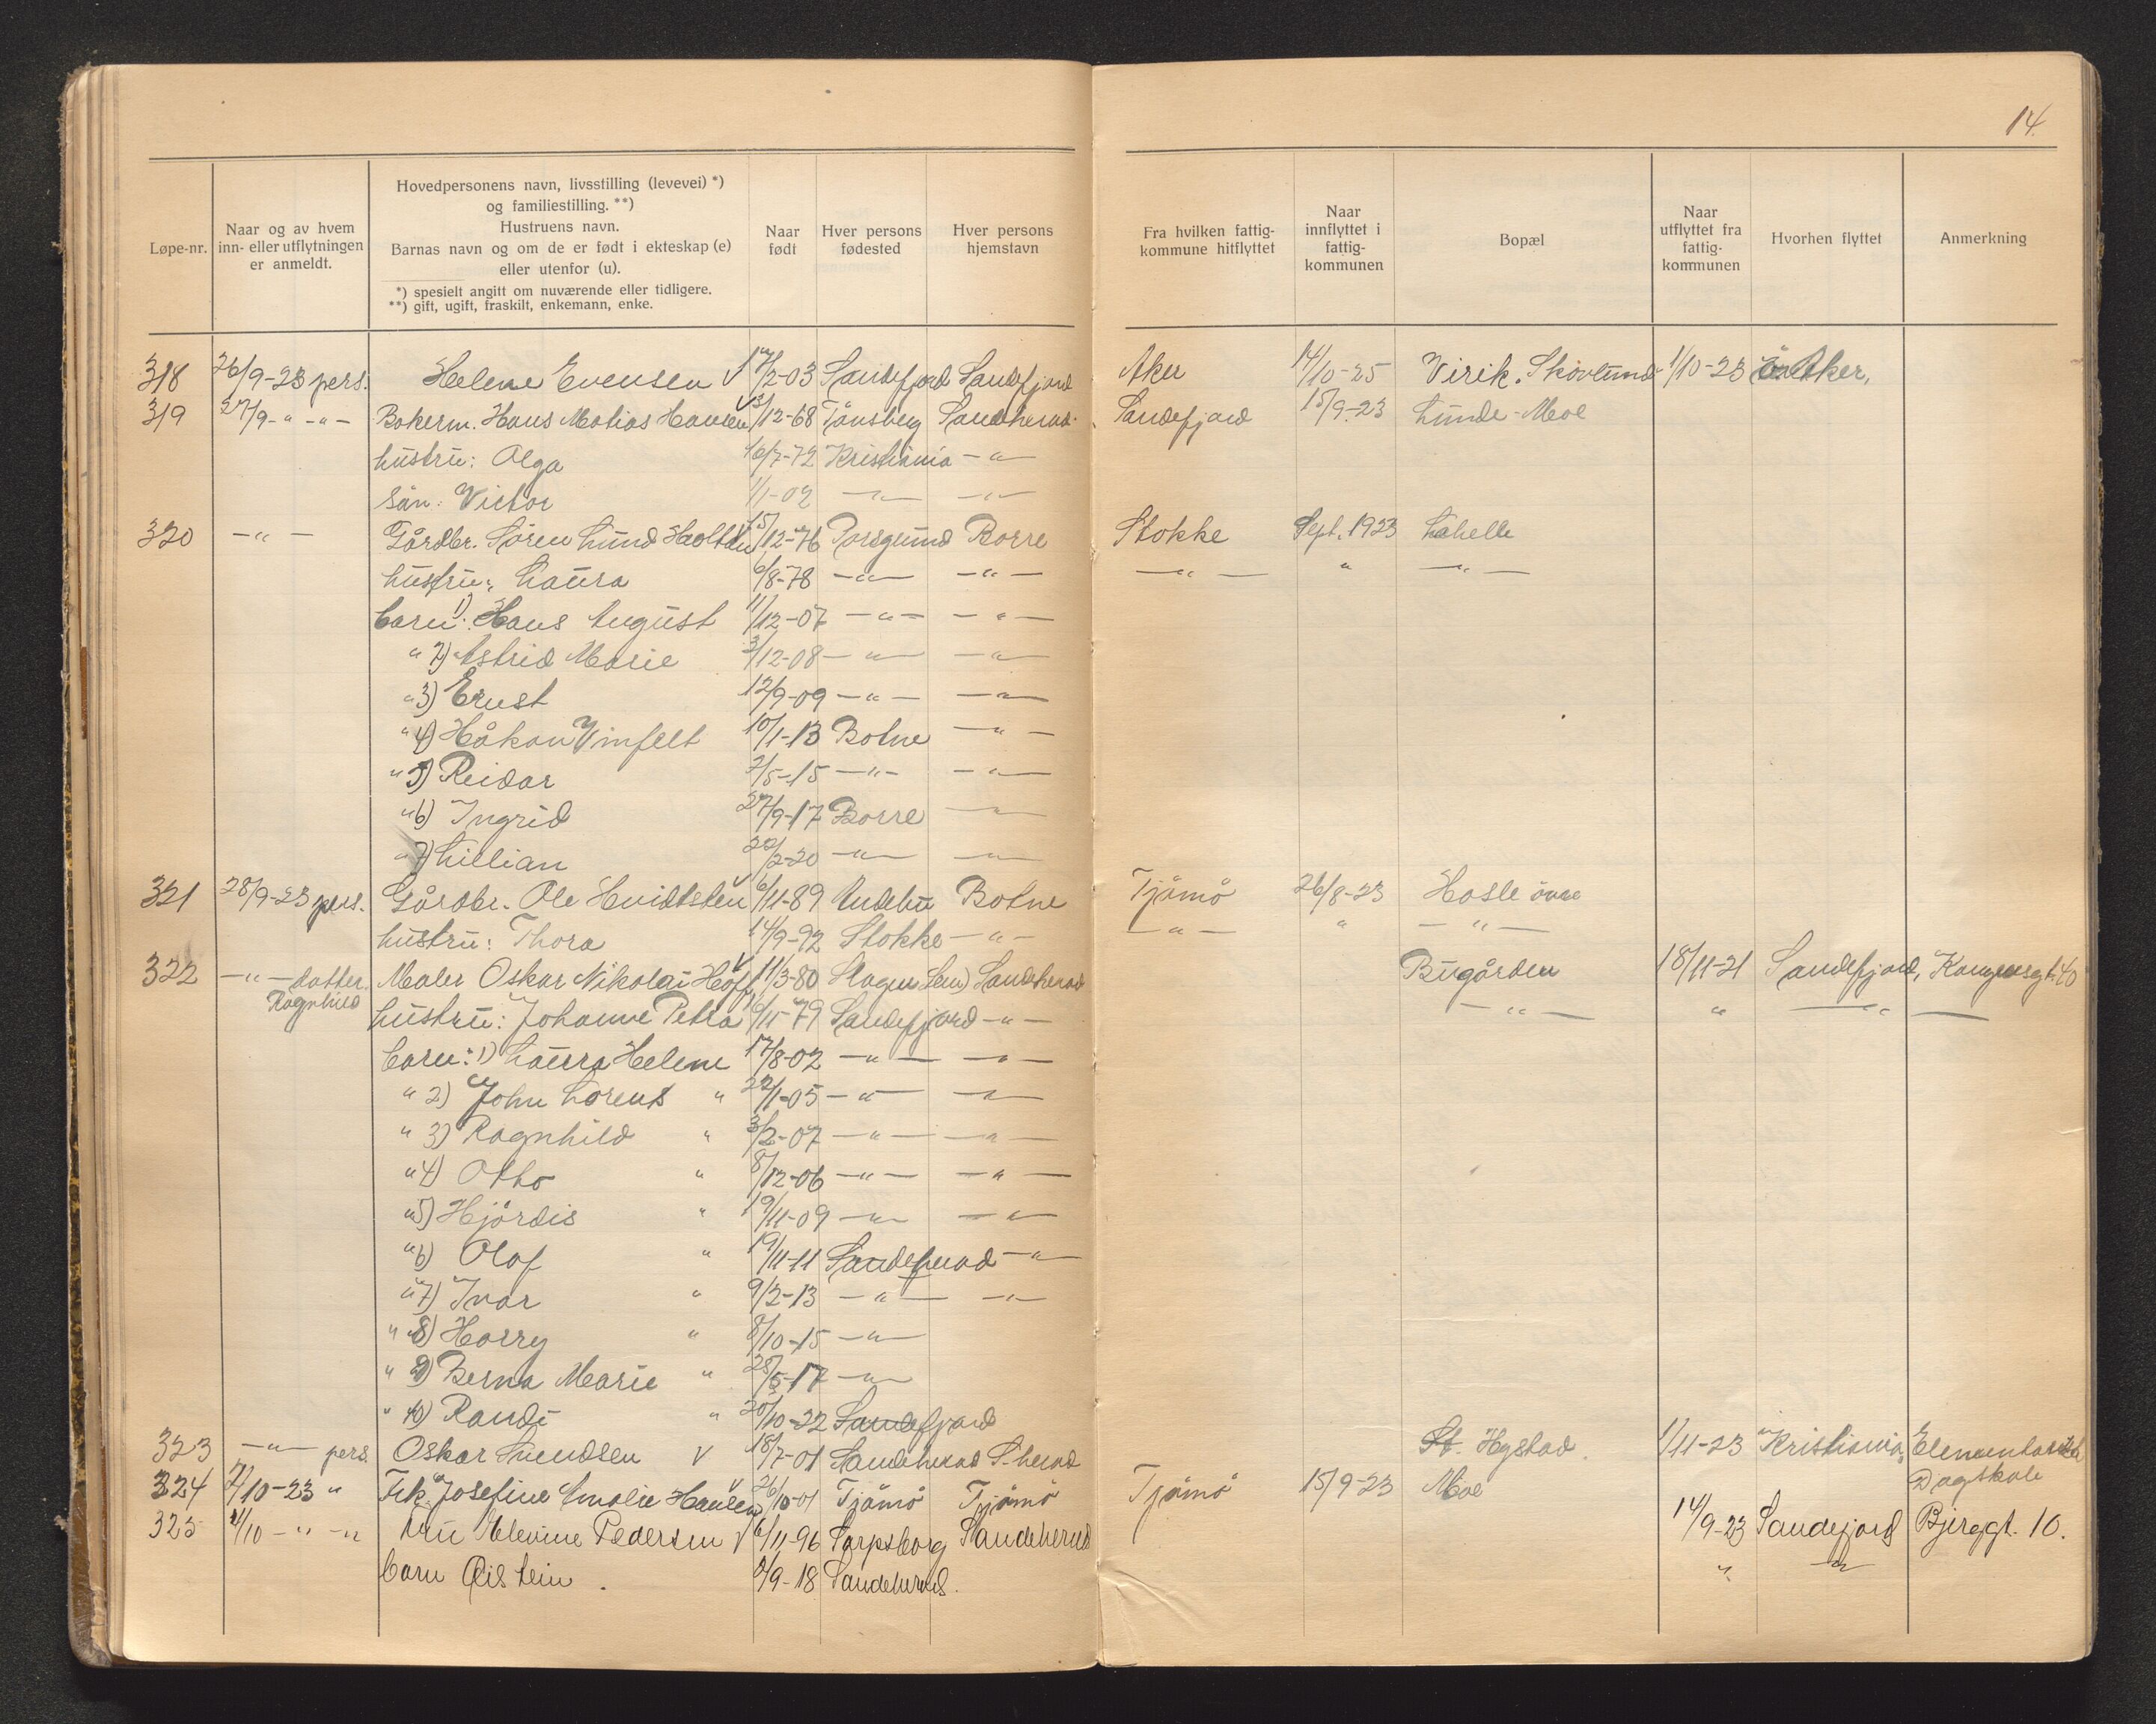 14.
Løpe-nr.
Naar og av hvem
inn- eller utflytningen
er anmeldt.
Hovedpersonens navn, livsstilling (levevei) *)
og familiestilling. **)
Hustruens navn.
Barnas navn og om de er født i ekteskap (e)
eller utenfor (u).
*) spesielt angitt om nuværende eller tidligere.
**) gift, ugift, fraskilt, enkemann, enke.
Naar
født
Hver persons
fødested
Hver persons
hjemstavn
Fra hvilken fattig-
kommune hitflyttet
Naar
innflyttet i
fattig-
kommunen
Bopæl
Naar
utflyttet fra
fattig-
kommunen
Hvorhen flyttet
Anmerkning
318 26/9-23 pers. Helene Evensen V 17/2-03 Sandefjord Sandefjord Aker 14/10-25 Virik. 1/10-23 Aker,
319 27/9-"-"- Hans Matias Hansen V 3/12-68 Tønsberg Sandeherad. Sandefjord 15/9-23 Lunde-Moe
hustru: Olga 16/7-72 Kristiania -"-
sån: Victor 1/1-02 -"- -"-
320 -"- Gårdbr. Søren Lund Holtan 15/12-76 Porsgrund Borre Stokke Sept. 1923 Lahelle
hustru: Laura 6/8-78 -"- -"- -"- " -"-
barn: 1) Hans August 11/12-07 -"- -"-
" 2) Astrid Marie 3/12-08 -"- -"-
" 3) Ernst 12/9-09 -"- -"-
" 4) Håkon Vinfelt 10/1-13 Botne -"-
" 5) Reidar 7/5-15 -"- -"-
" 6) Ingrid 27/9-17 Borre -"-
" 7) Lillian 20/2-20 -"- -"-
321 28/9-23 pers. Gårdbr. Ole Hvidtsten V 6/11-89 Andebu Botne Tjømø 26/8-23 Hasle øvre
hustru: Thora 14/9-92 Stokke -"- -"- " -"-
322 -"- datter. Maler Oskar Nikolai Høff V 11/3-80 Slagen (Sem) Sandeherad Bugården 18/11-21 Sandefjord, Kongensgt. 40
Ragnhild hustru: Johanne Petra 6/11-79 Sandefjord -"- -"- " -"-
barn: 1) Laura Helene 17/8-02 -"- -"-
" 2) John Lorents " 22/1-05 -"- -"-
" 3) Ragnhild " 3/2-07 -"- -"-
" 4) Otto " 8/12-06 -"- -"-
" 5) Hjördis " 19/11-09 -"- -"-
" 6) Olaf " 19/11-11 Sandeherad -"-
" 7) Ivar " 9/2-13 -"- -"-
" 8) Harry " 8/10-15 -"-
" 9) Berna Marie " 28/5-17 -"-
" 10) Randi " 20/10-22 Sandefjord
323 -"- pers. Oskar Svendsen V 18/7-01 Sandeherad S.herad St. Hystad. 1/11-23 Kristiania,
324 2/10-23 " Frk. Josefine Amalie Hansen V 26/10-01 Tjømø Tjømø Tjømø 15/9-23 Moe Dagskole
325 4/10-"-" Fru Elevine Pedersen V 6/11-96 Sarpsborg Sandeherad 14/9-23 Sandefjord Bjerggt. 10.
barn Øistein. 2/9-18 Sandeherad. " -"-